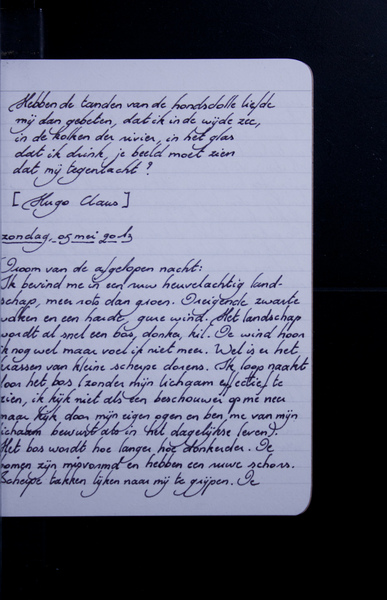 Hebben de tanden van de hondsdolle liefde
mij dan gebeten, dat ik in de wijde zee,
in de kolken der rivier, in het glas
dat ik drink, je beeld moet zien
dat mij tegenlacht?
[Hugo Claus]
zondag, 05 mei 2013
Droom van de afgelopen nacht:
Ik bevind me in een ruw heuvelachtig land-
schap, meer rots dan groen. Dreigende zwarte
wolken en een harde, gure wind. Het landschap
wordt al snel een bos, donker, kil. De wind hoor
ik nog wel maar voel ik niet meer. Wel is er het
krassen van kleine scherpe dorens. Ik loop naakt
door het bos (zonder mijn lichaam effectief te
zien, ik kijk niet als een beschouwer op me neer
maar kijk door mijn eigen ogen en ben me van mijn
lichaam bewust als in het dagelijkse leven).
Het bos wordt hoe langer hoe donkerder. De
bomen zijn misvormd en hebben een ruwe schors.
Scherpe takken lijken naar mij te grijpen. De